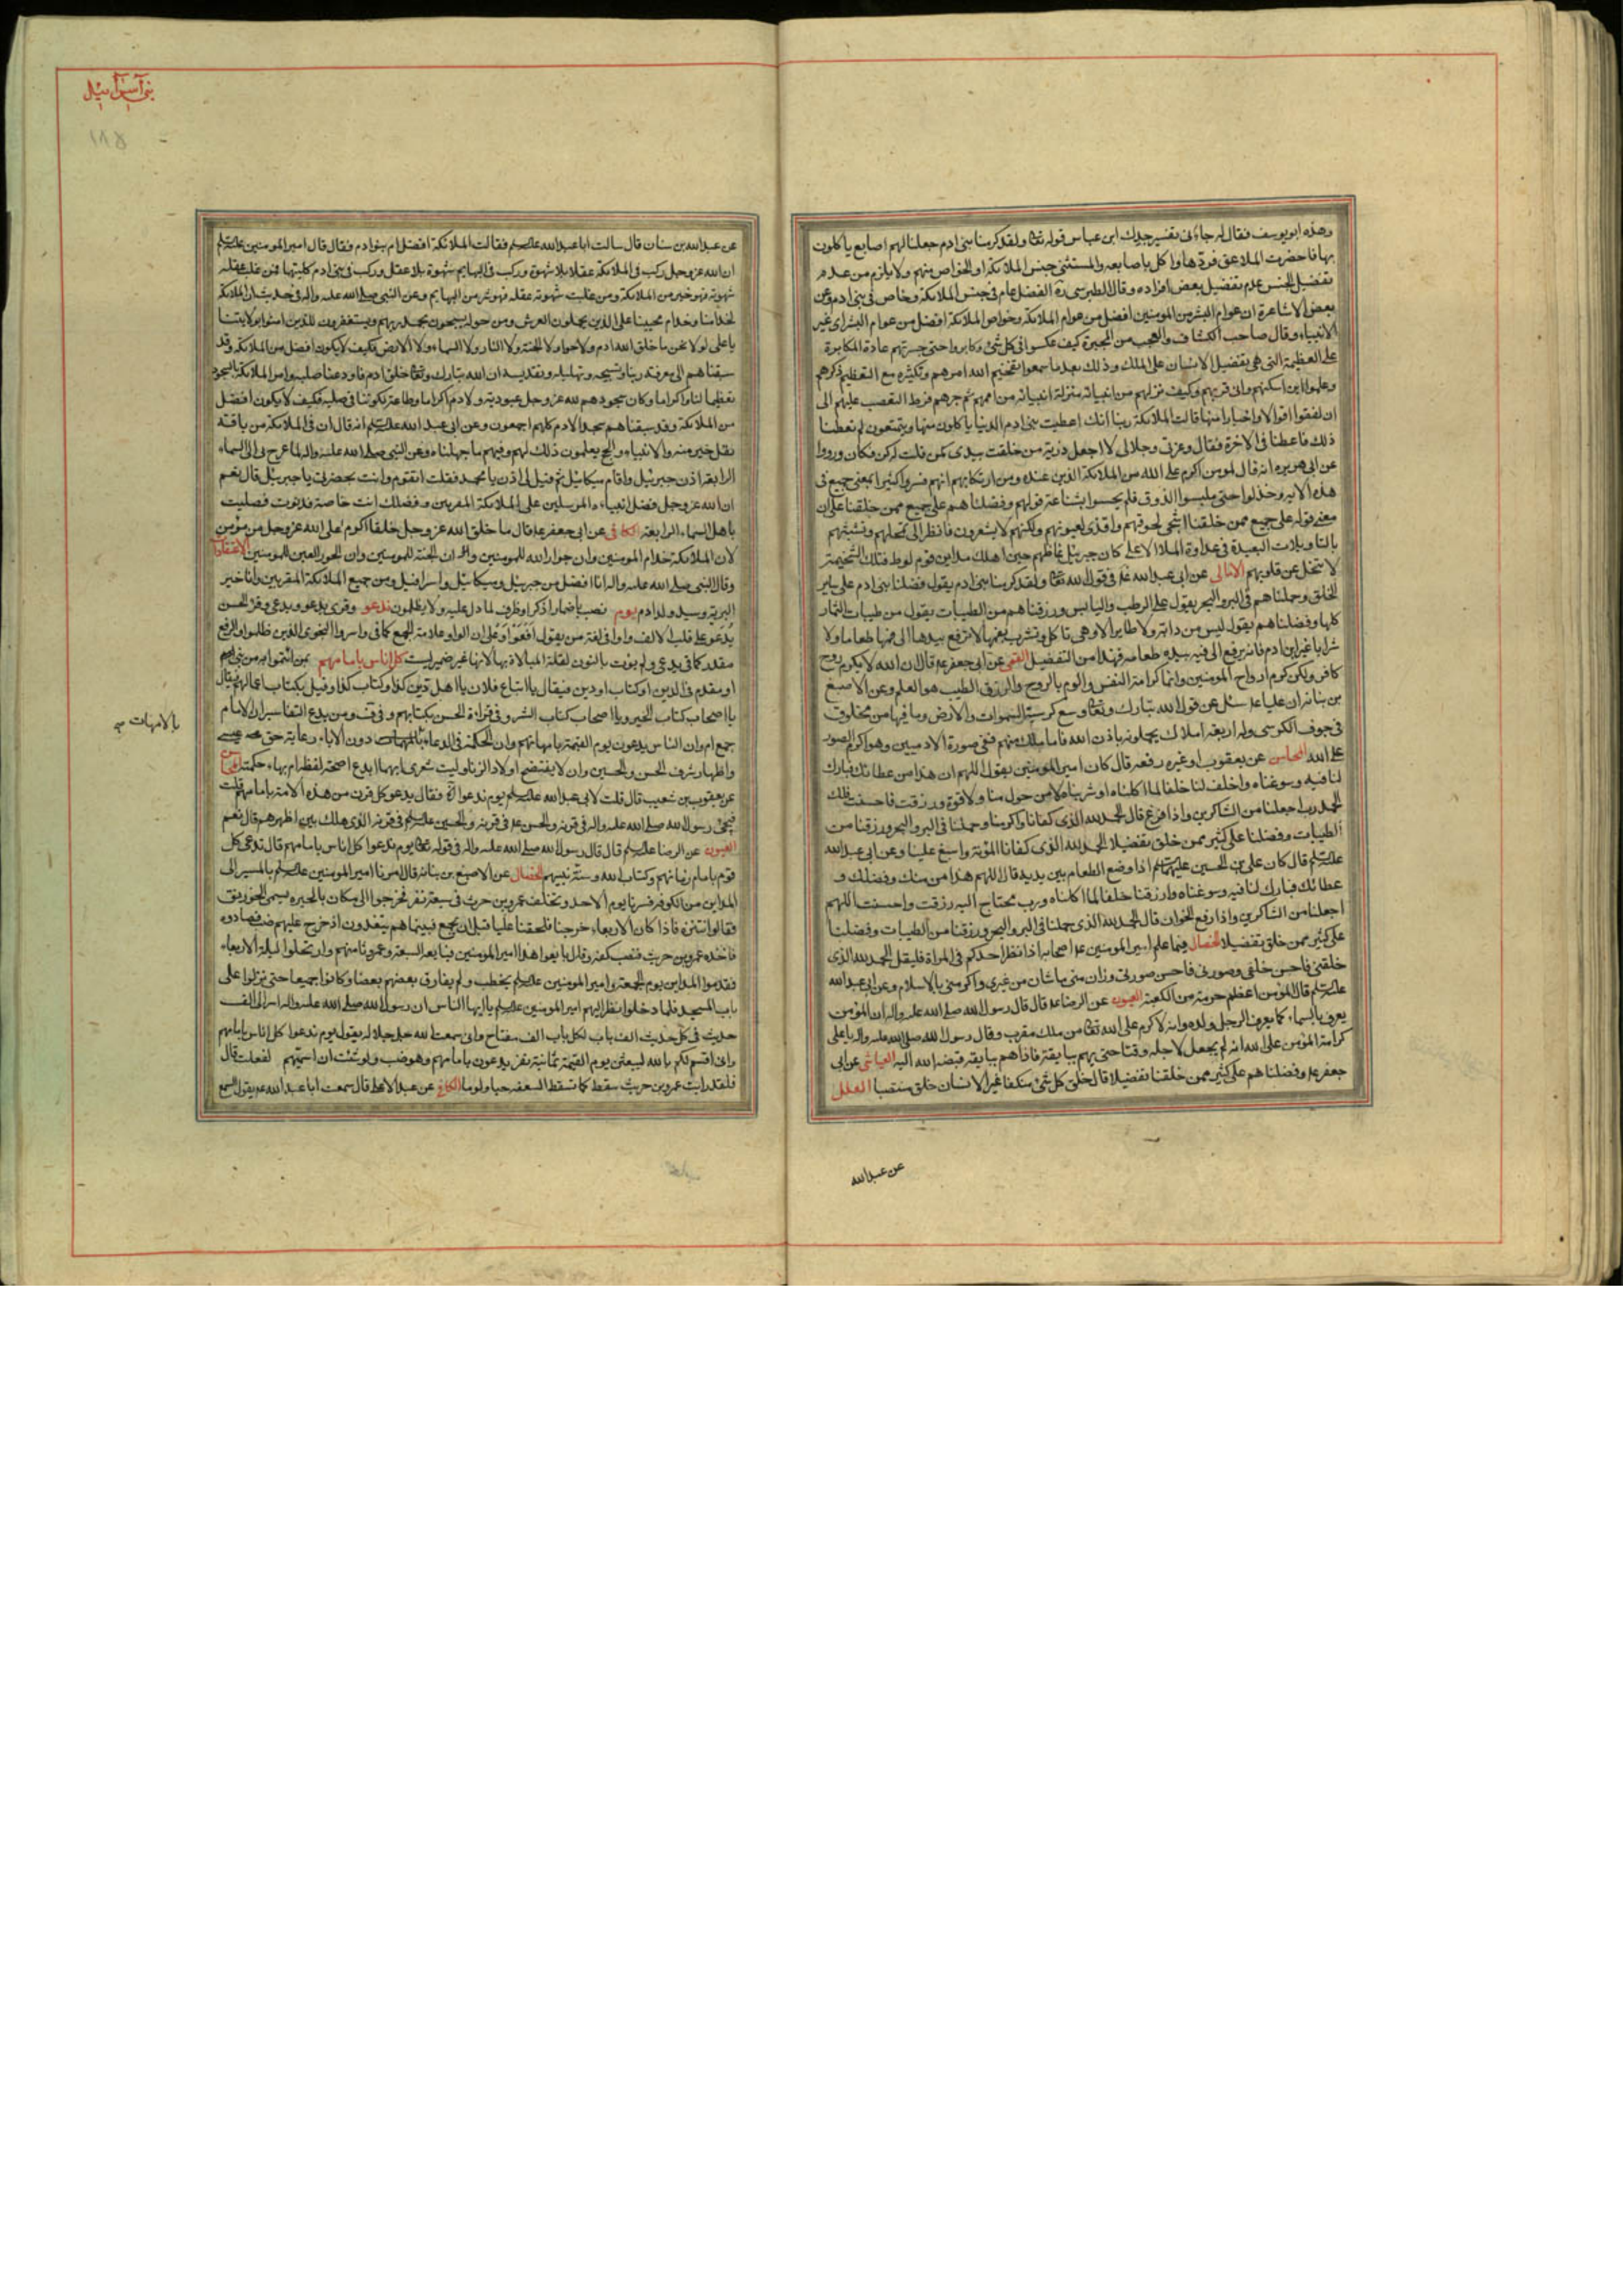 وعنده ابويوسف فقال له جاء في تفسير جدك ابن عباس قوله تعالى ولقد كرمنا بني ادم جعلنا لهم اصابع ياكلون
بها فاحضرت الملاعق فردها واكل باصابعه والمستثنى جنس الملائكة او الخواص منهم ولا يلزم من عدم
تفضيل الجنس عدم تفضيل بعض افراده وقال الطبرسي ره الفضل عام في جنس الملائكة وخاص في بني ادم وعن
بعض الاشاعرة ان عوام البشر من المومنين افضل من عوام الملائكة وخواص الملائكة افضل من عوام البشر اي غير
الانبياء وقال صاحب الكشاف والعجب من المجبرة كيف عكسوا في كل شئ وكابروا حتى جسرتهم عادة المكابرة
على العظيمة التي هي تفضيل الانسان على الملك وذلك بعد ما سمعوا تفخيم الله امرهم وتكثيره مع التعظيم ذكرهم
وعلموا اين اسكنهم واني قربهم وكيف نزلهم من انبيائه منزلة انبيائه من اممهم ثم جرهم فرط التعصب عليهم الى
ان لفقوا اقوالا واخبارا منها قالت الملائكة ربنا انك اعطيت بني ادم الدنيا ياكلون منها ويتمتعون لم تعطنا
ذلك فاعطنا في الاخرة فقال وعزتي وجلالي لا اجعل ذرية من خلقت بيدي كمن قلت له كن فكان ورووا
عن ابي هريرة انه قال لمومن اكرم على الله من الملائكة الذين عنده ومن ارتكابهم انهم فسروا كثيرا بمعنى جميع في
هذه الاية وخذلوا حتى سلبوا الذوق فلم يحسوا بشاعة قولهم وفضلناهم على جميع ممن خلقنا على ان
معنى قوله على جميع ممن خلقنا اشجى لحوقهم واقذى لعيونهم ولكنهم لا يشعرون فانظر الى تمحلهم وتشبثهم
بالتاويلات البعيدة في عداوة الملا الاعلى كان جبريل غاظهم حين اهلك مداين قوم لوط فتلك السخيمة
لا تنحل عن قلوبهم الامالي عن ابي عبد الله ع في قول الله تعالى ولقد كرمنا بني ادم يقول فضلنا بني ادم على ساير
الخلق وحملناهم في البر والبحر يقول على الرطب واليابس ورزقناهم من الطيبات يقول من طيبات الثمار
كلها وفضلناهم يقول ليس من دابة ولا طاير الا وهي تاكل وتشرب بفمها لا ترفع بيدها الى فمها طعاما ولا
شرابا غير ابن ادم فانه يرفع الى فيه بيده طعامه فهذا من التفضيل القمي عن ابي جعفر ع قال ان الله لا يكرم روح
كافر ولكن كرم ارواح المومنين وانما كرامة النفس والدم بالروح والرزق الطيب هو العلم وعن الاصبغ
بن نباته ان عليا ع سئل عن قول الله تبارك وتعالى وسع كرسيه السموات والارض وما فيها من مخلوق
في جوف الكرسي وله اربعة املاك يحملونه باذن الله فاما ملك منهم ففي صورة الادميين وهو اكرم الصور
على الله المحاسن عن يعقوب او غيره رفعه قال كان امير المومنين يقول اللهم ان هذا من عطائك فبارك
لنا فيه وسوغناه واخلف لنا خلفا لما اكلناه او شربناه لا من حول منا ولا قوة ورزقت فاحسنت فلك
الحمد رب اجعلنا من الشاكرين واذا فرغ قال الحمد لله الذي كفانا واكرمنا وحملنا في البر والبحر ورزقنا من
الطيبات وفضلنا على كثير ممن خلق تفضيلا الحمد لله الذي كفانا المؤنة واسبغ علينا وعن ابي عبد الله
عليه السلم قال كان علي بن الحسين عليهما السلم اذا وضع الطعام بين يديه قال اللهم هذا من منك وفضلك و
عطائك فبارك لنا فيه وسوغناه وارزقنا خلفا لما اكلناه ورب محتاج اليه رزقت واحسنت اللهم
اجعلنا من الشاكرين واذا رفع الخوان قال الحمد لله الذي حملنا في البر والبحر ورزقنا من الطيبات وفضلنا
على كثير ممن خلق تفضيلا الخصال فيما علم امير المومنين ع اصحابه اذا نظر احدكم في المراة فليقل الحمد لله الذي
خلقني فاحسن خلقي وصورني فاحسن صورتي وزان مني ما شان من غيري واكرمني بالاسلام وعن ابي عبد الله
عليه السلم قال المؤمن اعظم حرمة من الكعبة العيون عن الرضا ع قال قال رسول الله صلى الله عليه واله ان المؤمن
يعرف بالسماء كما يعرف الرجل ولده وانه لاكرم على الله تعالى من ملك مقرب وقال رسول الله صلى الله عليه واله يا علي
كرامة المؤمن على الله انه لم يجعل لاجله وقتا حتى يهم ببايقة فاذا هم ببايقة قبضه الله اليه العياشي عن ابي
جعفر ع وفضلناهم على كثير ممن خلقنا تفضيلا قال خلق كل شئ منكبا غير الانسان خلق منتصبا العلل
عن عبدالله
بني اسرائيل
١٨٥
عن عبدالله بن سنان قال سالت ابا عبد الله عليه السلم فقالت الملائكة افضل ام بنو ادم فقال قال امير المومنين عليه السلم
ان الله عز وجل ركب في الملائكة عقلا بلا شهوة وركب في البهايم شهوة بلا عقل وركب في بني ادم كليتهما فمن غلب عقله
شهوته فهو خير من الملائكة ومن غلبت شهوته عقله فهو شر من البهايم وعن النبي صلى الله عليه واله في حديث ان الملائكة
لخدامنا وخدام محبينا علي الذين يحملون العرش ومن حوله يسبحون بحمد ربهم ويستغفرون للذين امنوا بولايتنا
يا علي لولا نحن ما خلق الله ادم ولا حوا ولا الجنة ولا النار ولا السماء ولا الارض فكيف لا يكون افضل من الملائكة وقد
سبقناهم الى معرفة ربنا وتسبيحه وتهليله وتقديسه ان الله تبارك وتعالى خلق ادم فاودعنا صلبه وامر الملائكة بالسجود
تعظيما لنا واكراما وكان سجودهم لله عز وجل عبودية ولادم اكراما وطاعة لكوننا في صلبه فكيف لا يكون افضل
من الملائكة وقد سبقناهم سجدا لادم كلهم اجمعون وعن ابي عبد الله عليه السلم انه قال ان في الملائكة من باقة
بقل خير منه والانبياء والحجج يعلمون ذلك لهم وفيهم ما جهلناه وعن النبي صلى الله عليه واله لما عرج بي الى السماء
الرابعة اذن جبرئيل واقام ميكائيل ثم قيل لي ادن يا محمد فقلت اتقدم وانت بحضرتي يا جبرئيل قال نعم
ان الله عز وجل فضل انبياءه المرسلين على الملائكة المقربين وفضلك انت خاصة فدنوت فصليت
باهل السماء الرابعة الكافي عن ابي جعفر ع قال ما خلق الله عز وجل خلقا اكرم على الله عز وجل من مؤمن
لان الملائكة خدام المومنين وان جوار الله للمومنين وان الجنة للمومنين وان الحور العين للمومنين الاعتقادات
وقال النبي صلى الله عليه واله انا افضل من جبرئيل وميكائيل واسرافيل ومن جميع الملائكة المقربين وانا خير
البرية وسيد ولد ادم يوم نصب باضمار اذكر او ظرف لما دل عليه ولا يظلمون ندعو وقرئ يدعو ويدعى وقرا الحسن
يدعو على قلب الالف واوا في لغة من يقول افعو او على ان الواو علامة الجمع كما في واسروا النجوى الذين ظلموا والرفع
مقدر كما في يدعى ولم يؤت بالنون لقلة المبالاة بها لانها غير ضمير ليست كل اناس بامامهم بمن ائتموا به من نبيهم
او مقدم في الدين او كتاب او دين فيقال يا اتباع فلان يا اهل دين كذا وكتاب كذا وقيل بكتاب اعمالهم فيقال
يا اصحاب كتاب الخير ويا اصحاب كتاب الشر وفي قراءة الحسن بكتابهم وفي ف ومن بدع التفاسير ان الامام
جمع ام وان الناس يدعون يوم القيمة بامهاتهم وان الحكمة في الدعاء بالامهات دون الاباء رعاية حق عيسى
واظهار شرف الحسن والحسين وان لا يفتضح اولاد الزنا وليت شعري ايهما ابدع اصحة لفظه ام بهاء حكمته المحاسن
عن يعقوب بن شعيب قال قلت لابي عبد الله عليه السلم يوم ندعو الاية فقال يدعو كل قرن من هذه الامة بامامهم قلت
فيجئ رسول الله صلى الله عليه واله في قرنه والحسن ع في قرنه والحسين عليه السلم في قرنه الذي هلك بين اظهرهم قال نعم
العيون عن الرضا عليه السلم قال قال رسول الله صلى الله عليه واله في قوله تعالى يوم ندعوا كل اناس بامامهم قال يدعى كل
قوم بامام زمانهم وكتاب الله وسنة نبيهم الخصال عن الاصبغ بن نباته قال امرنا امير المومنين عليه السلم بالمسير الى
المداين من الكوفه فسرنا يوم الاحد وتخلف عمرو بن حريث في سبعة نفر فخرجوا الى مكان بالحيره يسمى الخورنق
فقالوا نتنزه فاذا كان الاربعاء خرجنا فلحقنا عليا قبل ان يجمع فبينما هم يتغدون اذ خرج عليهم ضب فصادوه
فاخذه عمرو بن حريث فنصب كفه وقال بايعوا هذا امير المومنين فبايعه السبعة وعمرو ثامنهم وارتحلوا ليلة الاربعاء
فقدموا المداين يوم الجمعة وامير المومنين عليه السلم يخطب ولم يفارق بعضهم بعضا وكانوا جميعا حتى نزلوا على
باب المسجد فلما دخلوا نظر اليهم امير المومنين عليه السلم يا ايها الناس ان رسول الله صلى الله عليه واله اسر الي الف
حديث في كل حديث الف باب لكل باب الف مفتاح واني سمعت الله جل جلاله يقول يوم ندعوا كل اناس بامامهم
واني اقسم لكم بالله ليبعثن يوم القيمة ثمانية نفر يدعون بامامهم وهو ضب ولو شئت ان اسميهم لفعلت قال
فلقد رايت عمرو بن حريث سقط كما تسقط السعفه حيا ولوما الكافي عن عبد الاعلى قال سمعت ابا عبد الله ع يقول السمع
بالامهات